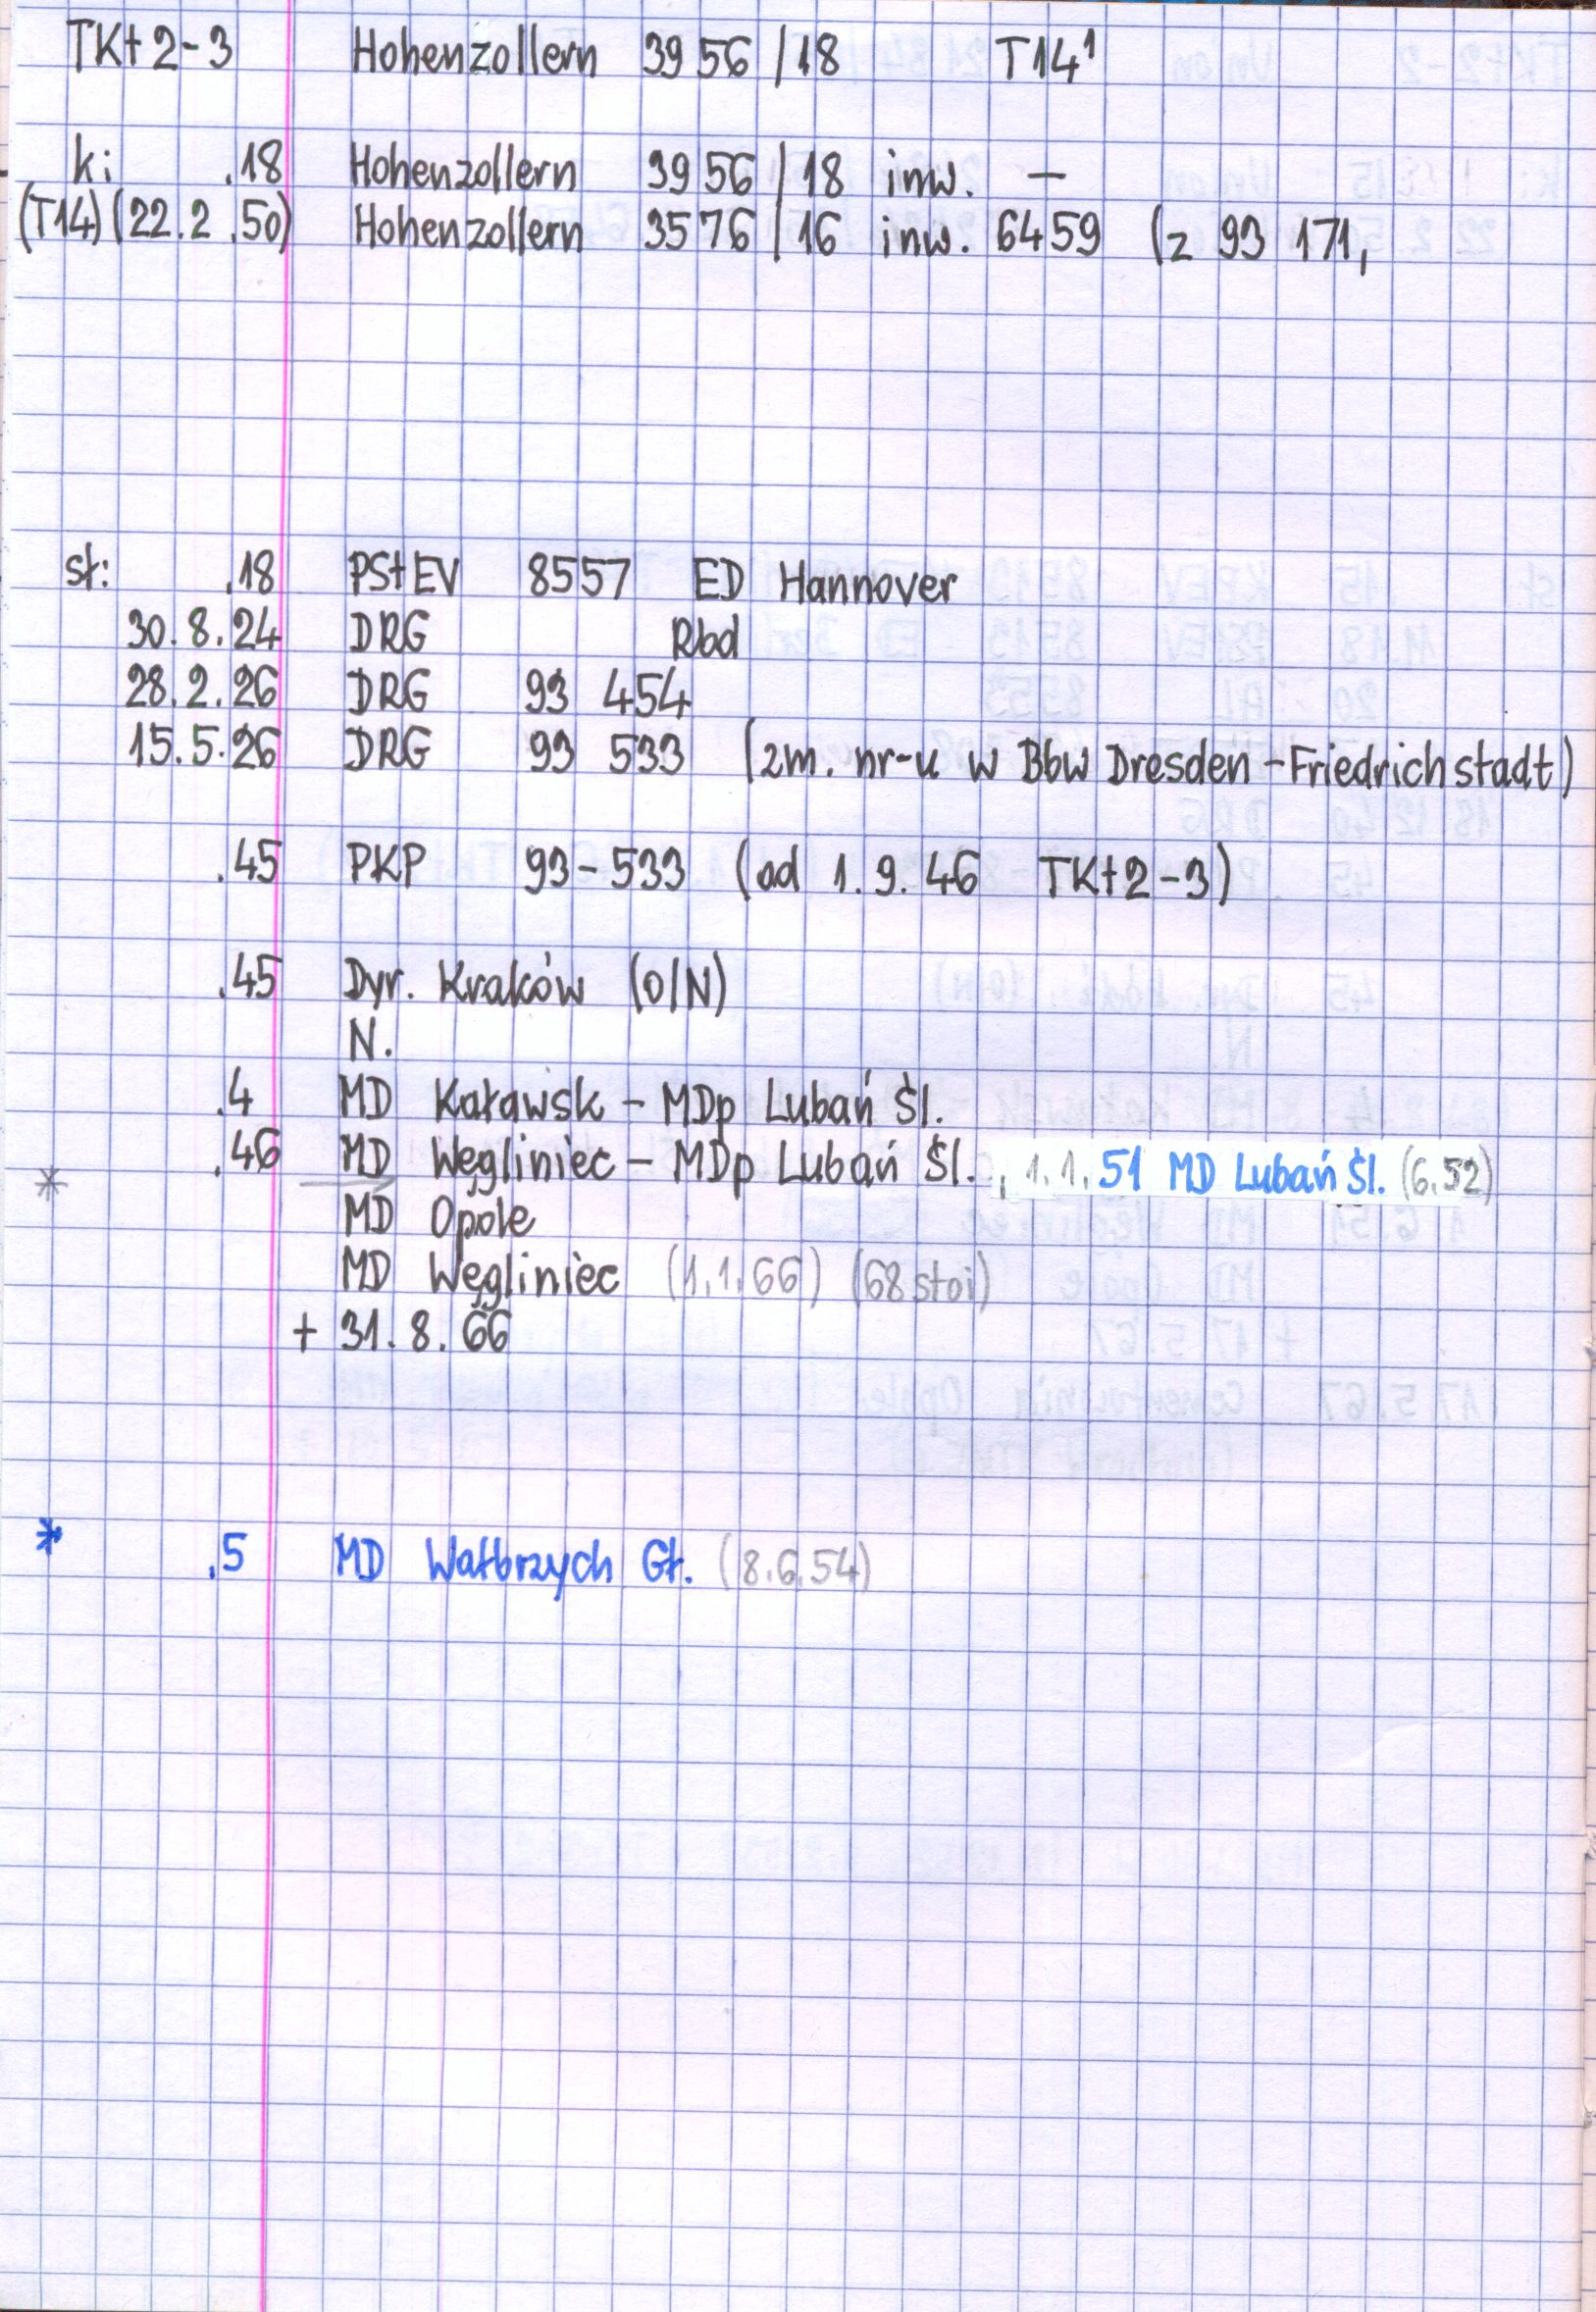 TKt2-3 Hohenzollern 3956/18 T14¹
k: .18 Hohenzollern 3956/18 inw. —
(T14) (22.2.50) Hohenzollern 3576/16 inw. 6459 (z 93 171,
st: .18 PStEV 8557 ED Hannover
30.8.24 DRG Rbd
28.2.26 DRG 93 454
15.5.26 DRG 93 533 (zm. nr-u w Bbw Dresden-Friedrichstadt)
.45 PKP 93-533 (od 1.9.46 TKt2-3)
.45 Dyr. Kraków (O/N)
N.
.4 MD Kaławsk - MDp Lubań Śl.
.46 MD Węgliniec - MDp Lubań Śl. , 1.1.51 MD Lubań Śl. (6.52)
*
MD Opole
MD Węgliniec (1.1.66) (68 stoi)
+ 31.8.66
* .5 MD Wałbrzych Gł. (8.6.54)